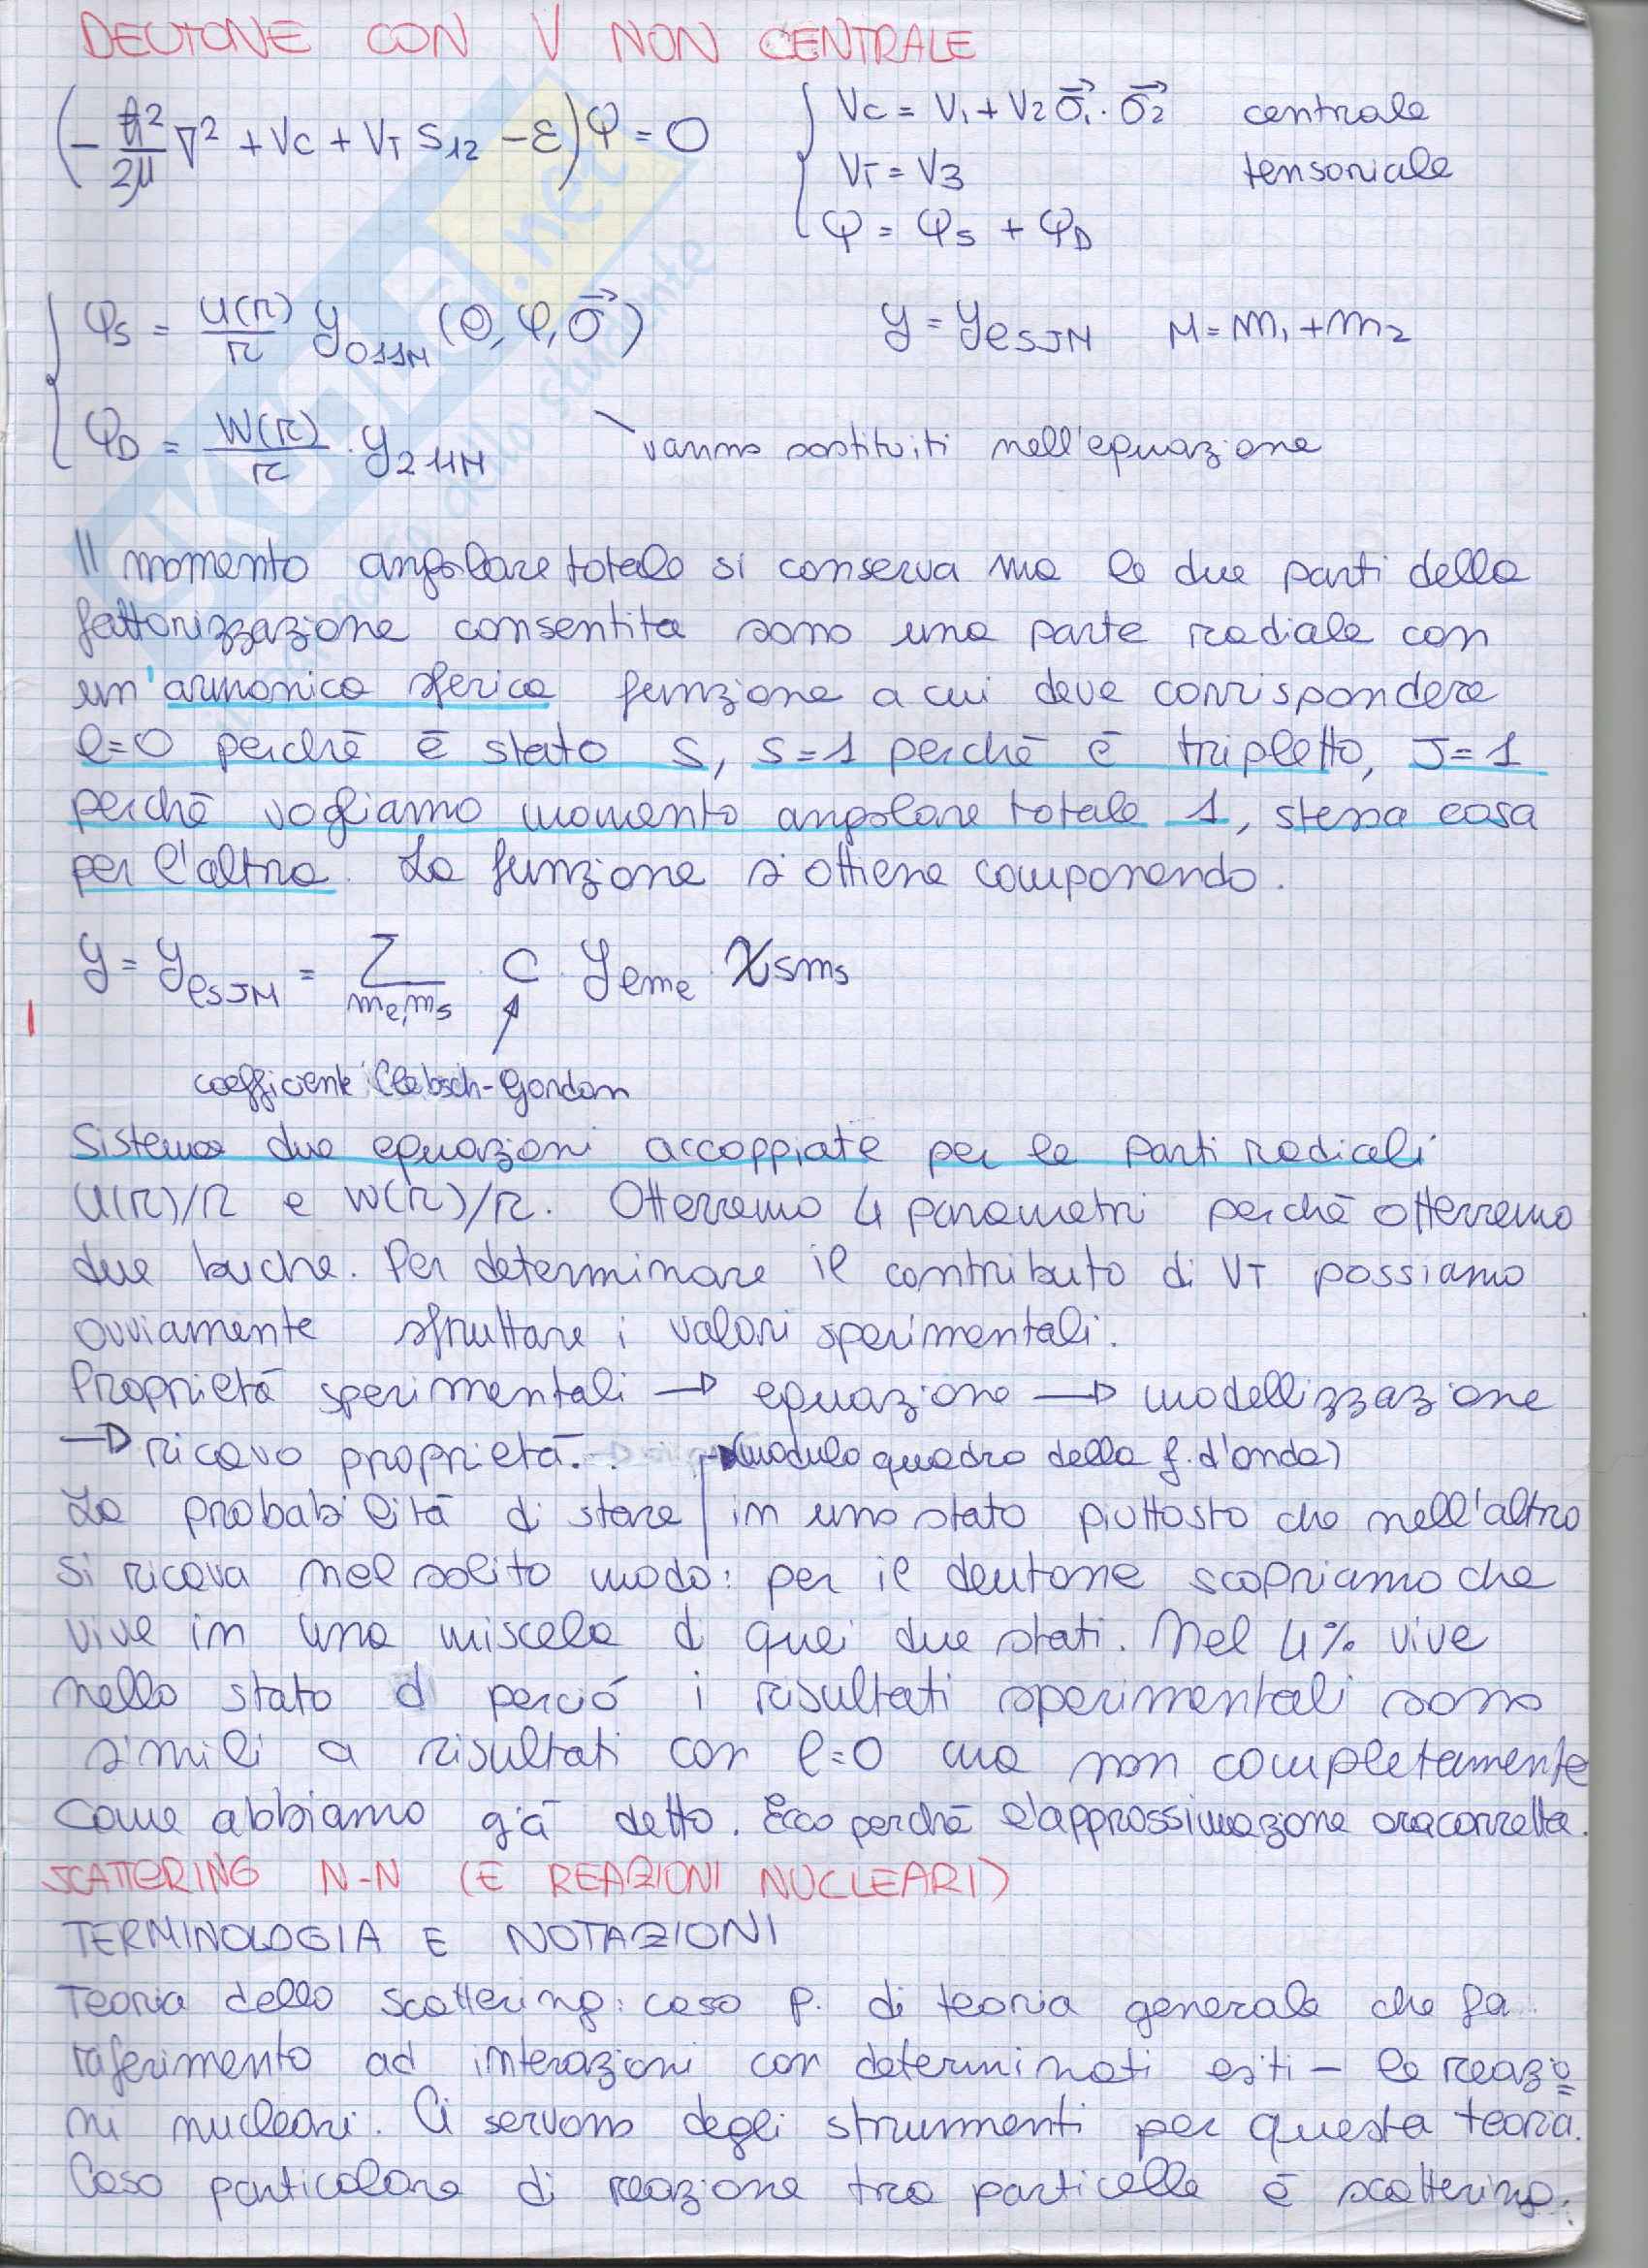 DEUTONE CON V NON CENTRALE
(-ħ²/2μ ∇² + Vc + VT S12 - ε)φ = 0
{ Vc = V1 + V2 σ⃗1 · σ⃗2 centrale
VT = V3 tensoriale
φ = φS + φD
{ φS = U(r)/r y011M (θ, φ, σ⃗) y = ylSJM M = m1 + m2
φD = W(r)/r · y211M vanno sostituiti nell'equazione
Il momento angolare totale si conserva ma le due parti della
fattorizzazione consentita sono una parte radiale con
un'armonica sferica funzione a cui deve corrispondere
l=0 perchè è stato S, s=1 perchè è tripletto, J=1
perchè vogliamo momento angolare totale 1, stessa cosa
per l'altra. La funzione si ottiene componendo.
y = ylSJM = Σ ml,ms · C · ylml · χsms
coefficiente Clebsch-Gordan
Sistema due equazioni accoppiate per le parti radicali
U(r)/r e W(r)/r. Otterremo 4 parametri perchè otterremo
due buche. Per determinare il contributo di VT possiamo
ovviamente sfruttare i valori sperimentali.
Proprietà sperimentali → equazione → modellizzazione
→ ricavo proprietà. (modulo quadro della f. d'onda)
La probabilità di stare in uno stato piuttosto che nell'altro
si ricava nel solito modo: per il deutone scopriamo che
vive in una miscela di quei due stati. Nel 4% vive
nello stato d perciò i risultati sperimentali sono
simili a risultati con l=0 ma non completamente
come abbiamo già detto. Ecco perchè l'approssimazione era corretta.
SCATTERING N-N (E REAZIONI NUCLEARI)
TERMINOLOGIA E NOTAZIONI
Teoria dello scattering: caso p. di teoria generale che fa
riferimento ad interazioni con determinati esiti - le reazio
ni nucleari. Ci servono degli strumenti per questa teoria.
Caso particolare di reazione tra particelle è scattering:
SKUOLA.net